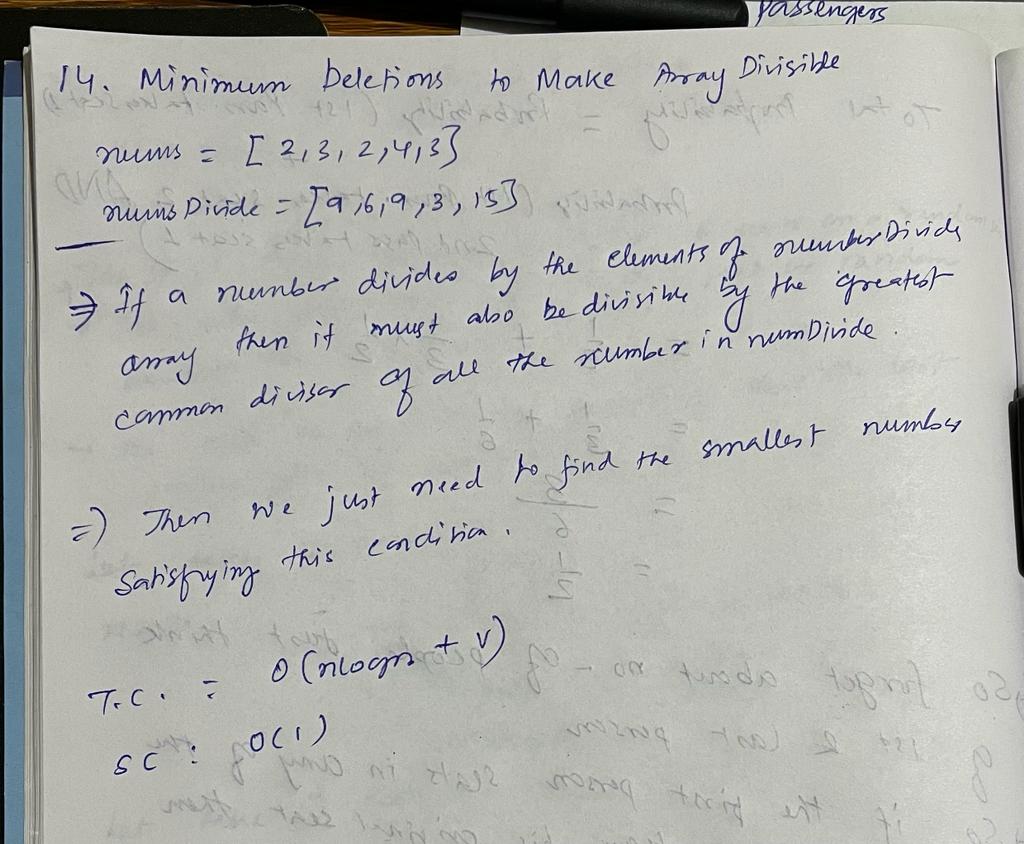 passengers
14. Minimum Deletions to Make Array Divisible
nums = [ 2,3,2,4,3]
nums Divide = [9,6,9,3,15]
⇒ If a number divides by the elements of numberDivide
array then it must also be divisible by the greatest
common divisor of all the number in numDivide.
=) Then we just need to find the smallest number
Satisfying this condition.
T.C. = O(nlogn + v)
SC : O(1)